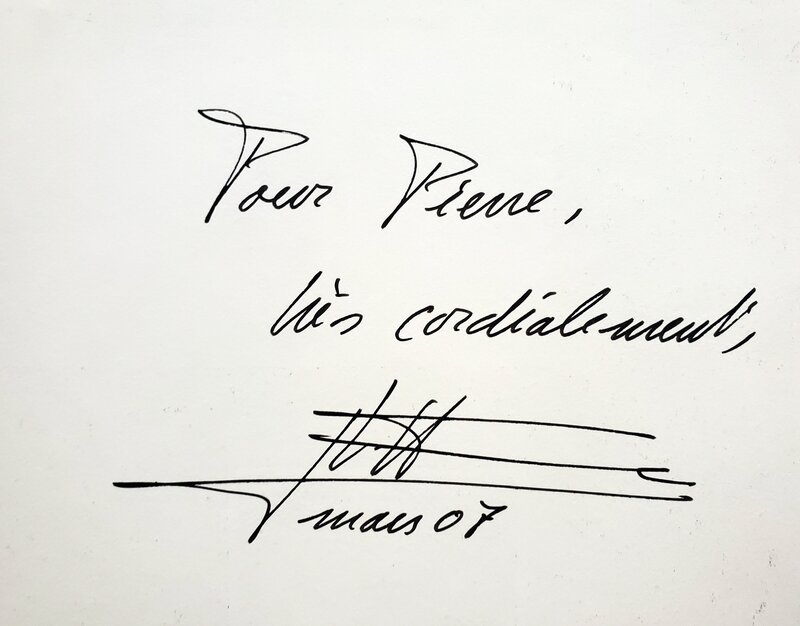 Pour Pierre,
très cordialement,
mars 07